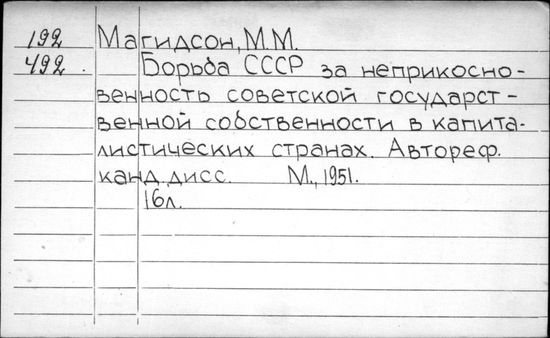 192 Магидсон, М.М.
492. Борьба СССР за неприкосно-
венность советской государст-
венной собственности в капита-
листических странах. Автореф.
канд. дисс. М., 1951.
16л.